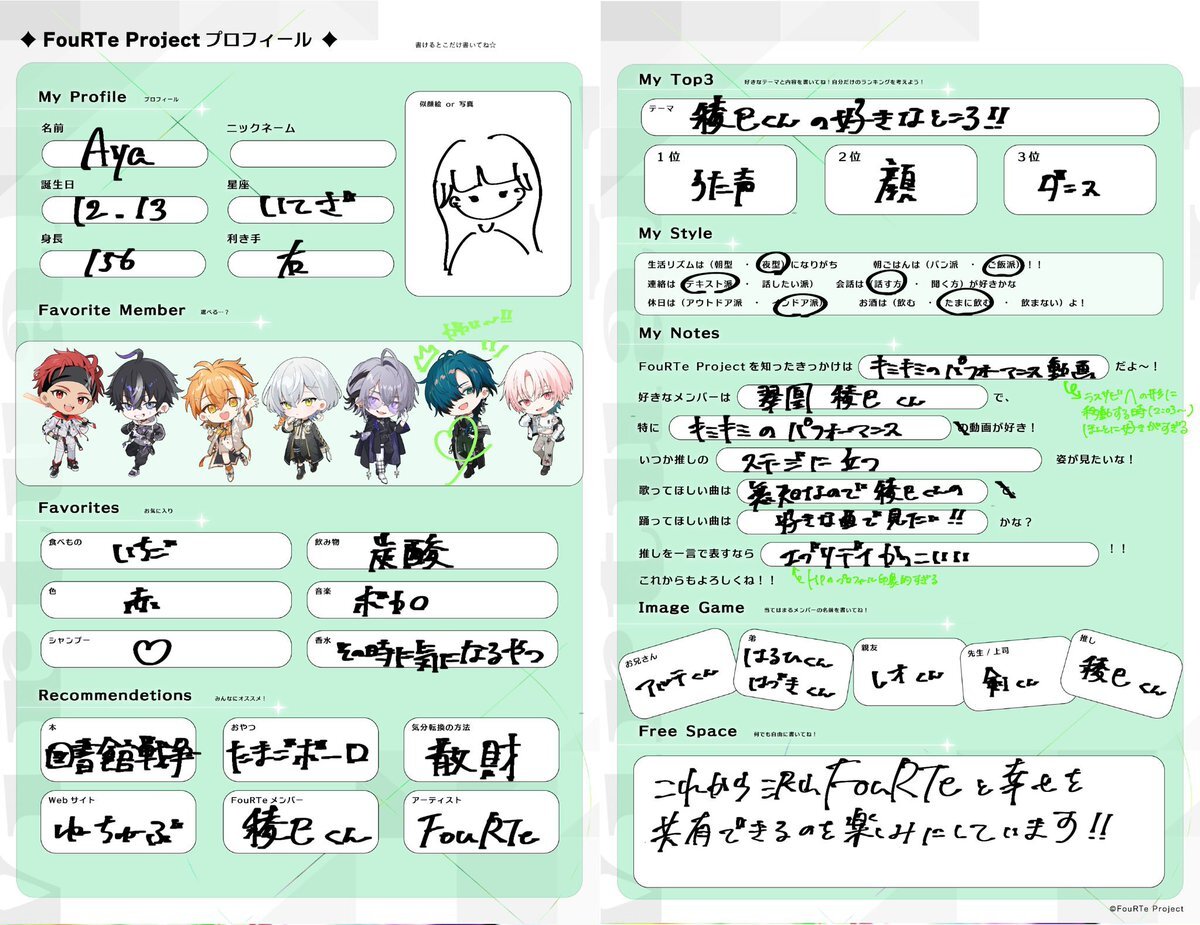 ◆ FouRTe Project プロフィール ◆
書けるとこだけ書いてね☆
My Profile プロフィール
名前
Aya
ニックネーム
誕生日
12.13
星座
いてざ
身長
156
利き手
右
似顔絵 or 写真
Favorite Member 選べる…？
Favorites お気に入り
食べもの
いちご
飲み物
炭酸
色
赤
音楽
ボカロ
シャンプー
♡
香水
その時に気になるやつ
Recommendetions みんなにオススメ！
本
図書館戦争
おやつ
たまごボーロ
気分転換の方法
散財
Webサイト
ゆーちゅーぶ
FouRTeメンバー
綾巳くん
アーティスト
FouRTe
My Top3 好きなテーマと内容を書いてね！自分だけのランキングを考えよう！
テーマ
綾巳くんの好きなところ!!
1位
うた声
2位
顔
3位
ダンス
My Style
生活リズムは（朝型 ・ 夜型）になりがち 朝ごはんは（パン派 ・ ご飯派）！！
連絡は（テキスト派 ・ 話したい派） 会話は（話す方 ・ 聞く方）が好きかな
休日は（アウトドア派 ・ インドア派） お酒は（飲む ・ たまに飲む ・ 飲まない）よ！
My Notes
FouRTe Projectを知ったきっかけは キミキミのパフォーマンス動画 だよ～！
好きなメンバーは 翠凰 綾巳くん で、
ラスサビへの形に
移動する時(2:03～)
ほんとに好きがすぎる
特に キミキミのパフォーマンス の動画が好き！
いつか推しの ステージに立つ 姿が見たいな！
歌ってほしい曲は 無知なので綾巳くんの
踊ってほしい曲は 好きな曲で見たい!! かな？
推しを一言で表すなら エブリデイかっこいい ！！
これからもよろしくね！！
HPのプロフィール印象的すぎる
Image Game 当てはまるメンバーの名前を書いてね！
お兄さん
アルテくん
弟
はるひくん
はづきくん
親友
レオくん
先生 / 上司
剣くん
推し
綾巳くん
Free Space 何でも自由に書いてね！
これから沢山FouRTeと幸せを
共有できるのを楽しみにしています!!
©FouRTe Project